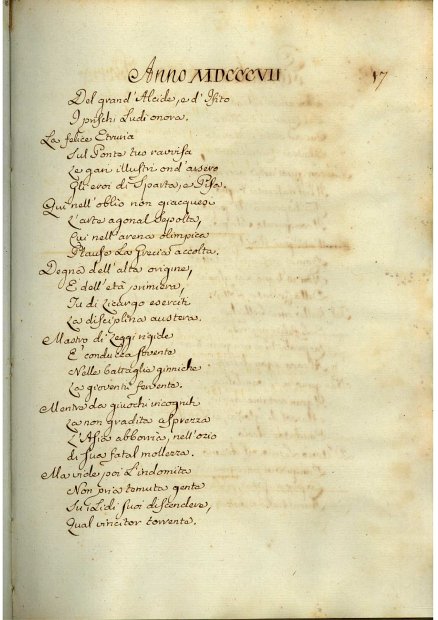 Anno MDCCCVII
17
Del grand'Alcide, e d'Ifito
I prischi Ludi onora.
La felice Etruria
Sul Ponte tuo ravvisa
Le gare illustri ond'arsero
Gli eroi di Sparta, e Pisa.
Qui nell'oblio non giacquesi
L'arte agonal sepolta,
Cui nell'arena olimpica
Plause La Grecia accolta.
Degna dell'alta origine,
E dell'età primiera,
Tu di Licurgo eserciti
La disciplina austera.
Mastro di Leggi rigide
E' conducea sovente
Nelle battaglie ginniche
La gioventù fervente.
Mentre da giuochi incogniti
La non gradita asprezza
L'Asia abborria, nell'ozio
di sua fatal mollezza.
Ma vide poi L'indomita
Non pria temuta gente
Su i Lidi suoi discendere,
Qual vincitor torrente.